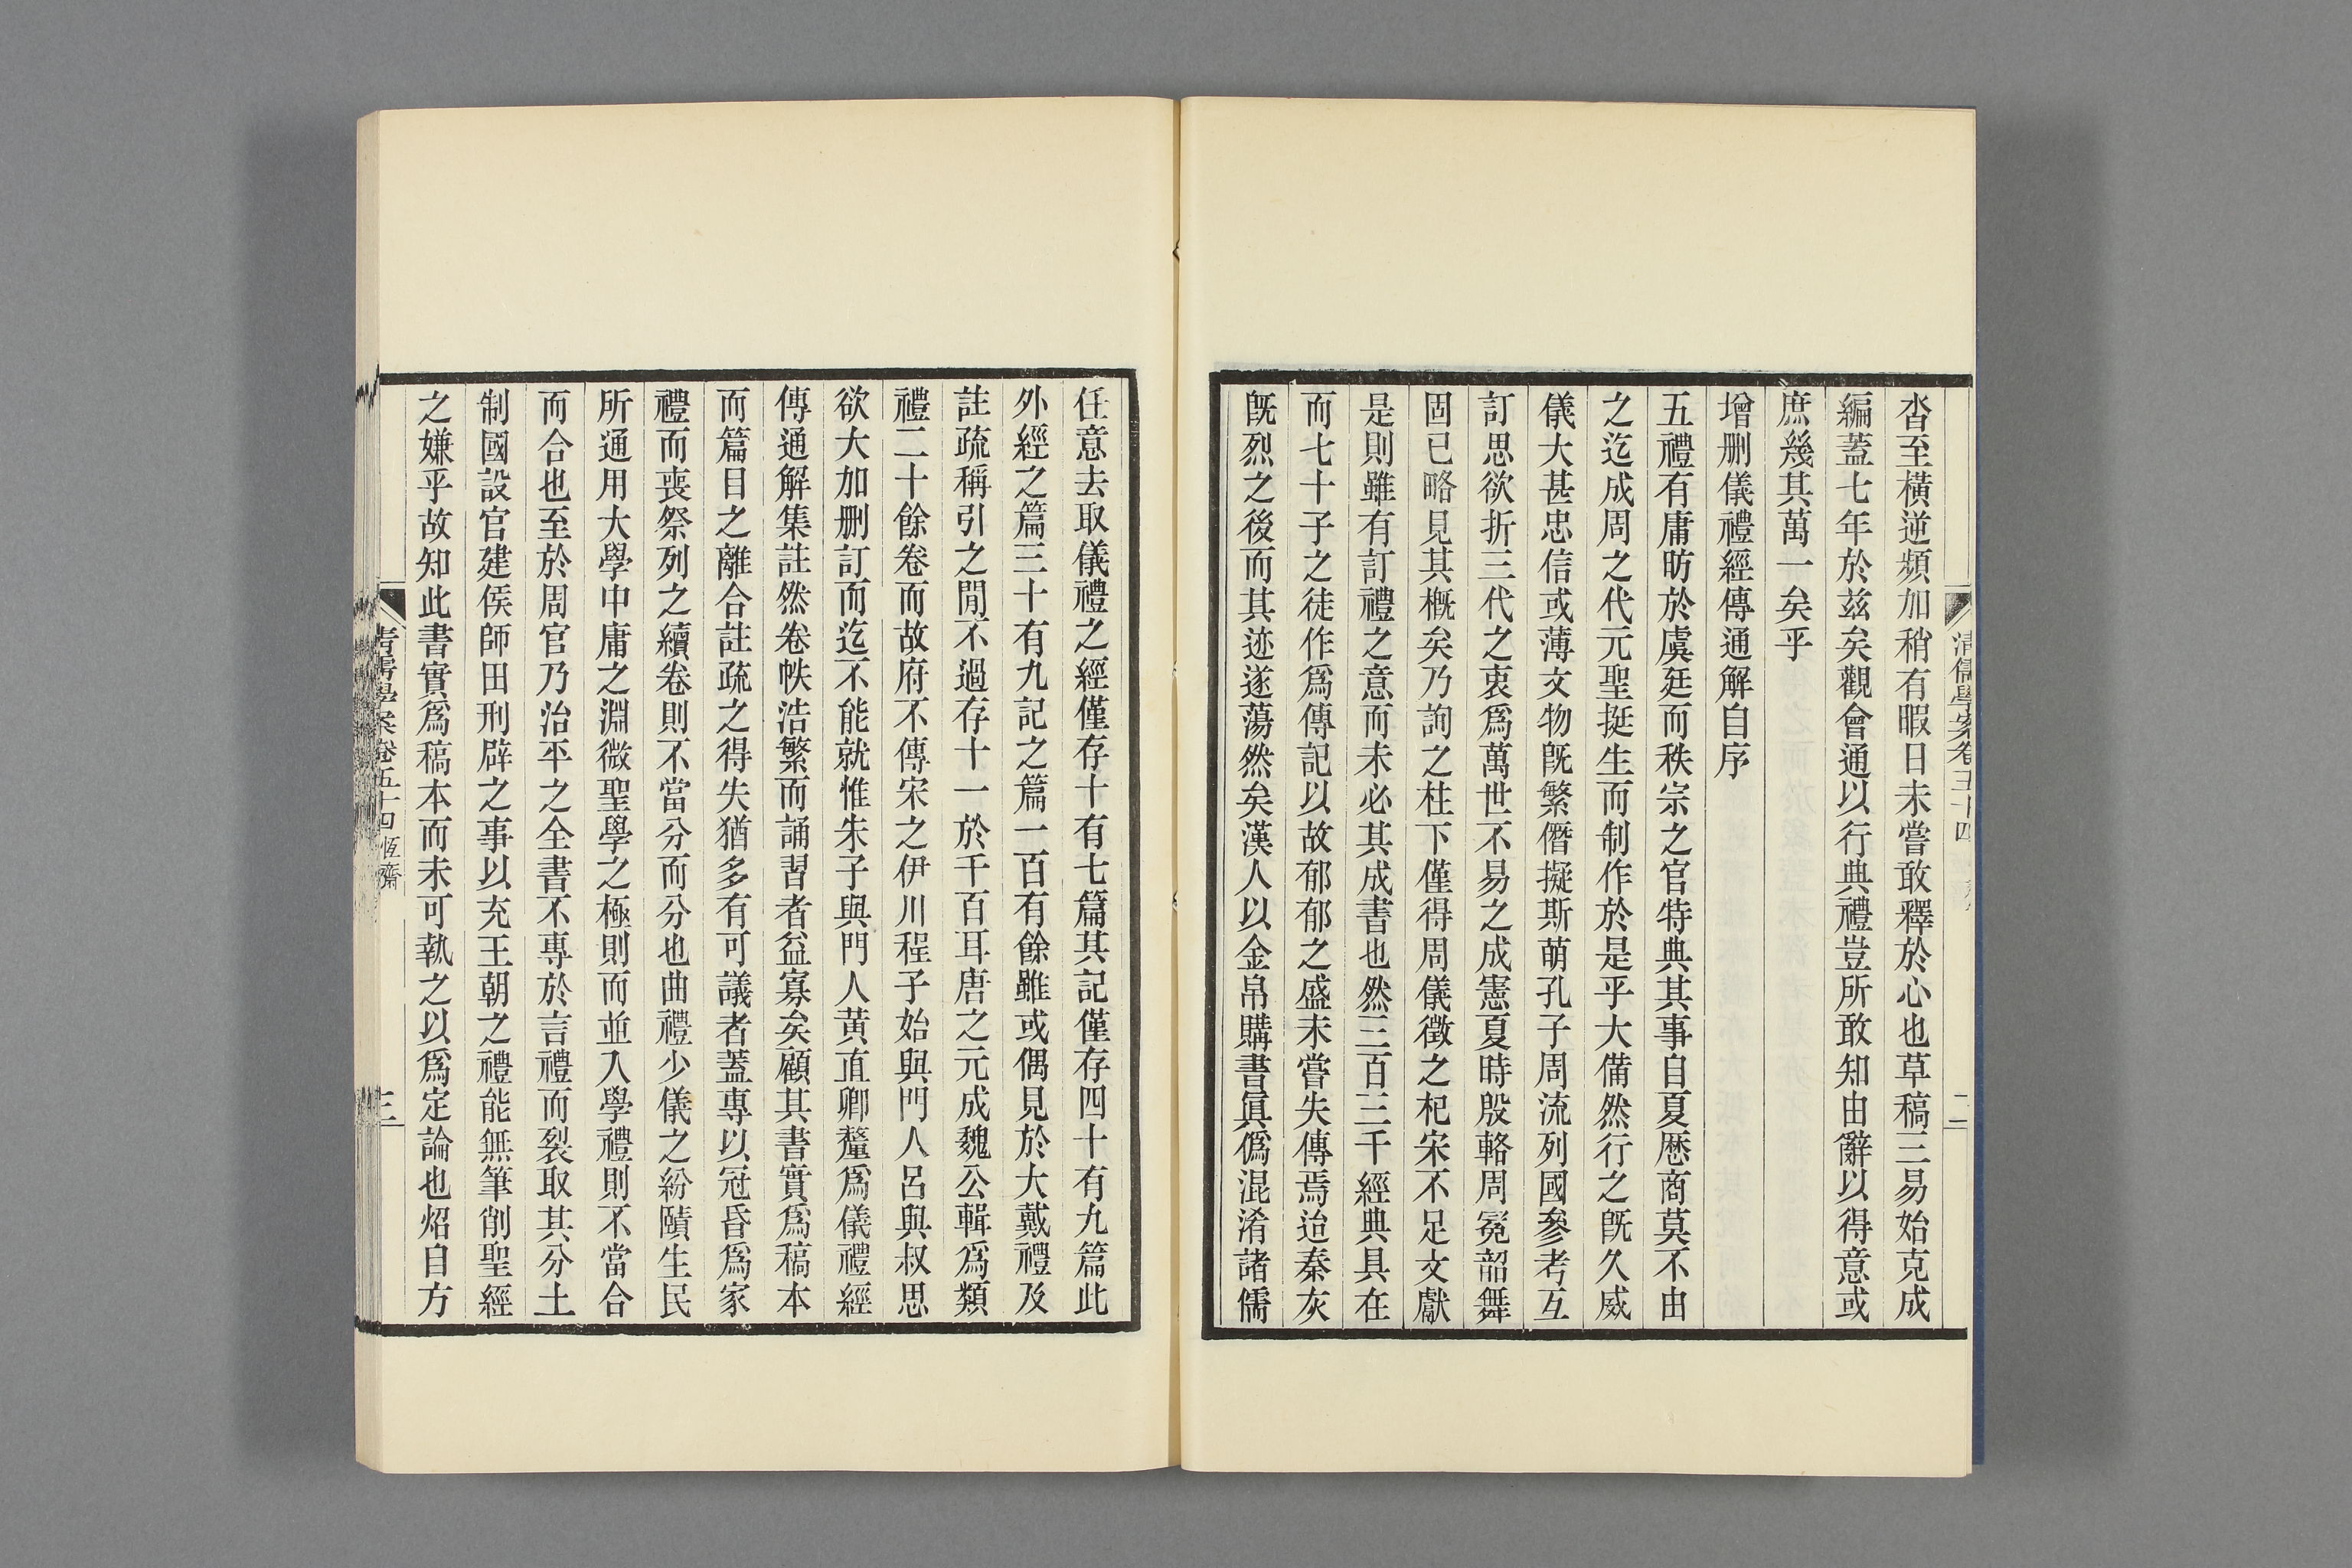 沓至橫逆頻加稍有暇日未嘗敢釋於心也草稿三易始克成
編蓋七年於茲矣觀會通以行典禮豈所敢知由辭以得意或
庶幾其萬一矣乎
增刪儀禮經傳通解自序
五禮有庸昉於虞廷而秩宗之官特典其事自夏歷商莫不由
之迄成周之代元聖挺生而制作於是乎大備然行之旣久威
儀大甚忠信或薄文物旣繁僭擬斯萌孔子周流列國參考互
訂思欲折三代之衷爲萬世不易之成憲夏時殷輅周冕韶舞
固已略見其槪矣乃詢之柱下僅得周儀徵之杞宋不足文獻
是則雖有訂禮之意而未必其成書也然三百三千經典具在
而七十子之徒作爲傳記以故郁郁之盛未嘗失傳焉迨秦灰
旣烈之後而其迹遂蕩然矣漢人以金帛購書眞僞混淆諸儒
清儒學案卷五十四
二
任意去取儀禮之經僅存十有七篇其記僅存四十有九篇此
外經之篇三十有九記之篇一百有餘雖或偶見於大戴禮及
註疏稱引之閒不過存十一於千百耳唐之元成魏公輯爲類
禮二十餘卷而故府不傳宋之伊川程子始與門人呂與叔思
欲大加刪訂而迄不能就惟朱子與門人黃直卿釐爲儀禮經
傳通解集註然卷帙浩繁而誦習者益寡矣顧其書實爲稿本
而篇目之離合註疏之得失猶多有可議者蓋專以冠昏爲家
禮而喪祭列之續卷則不當分而分也曲禮少儀之紛賾生民
所通用大學中庸之淵微聖學之極則而並入學禮則不當合
而合也至於周官乃治平之全書不專於言禮而裂取其分土
制國設官建侯師田刑辟之事以充王朝之禮能無筆削聖經
之嫌乎故知此書實爲稿本而未可執之以爲定論也炤自方
清儒學案卷五十四 恆齋
三